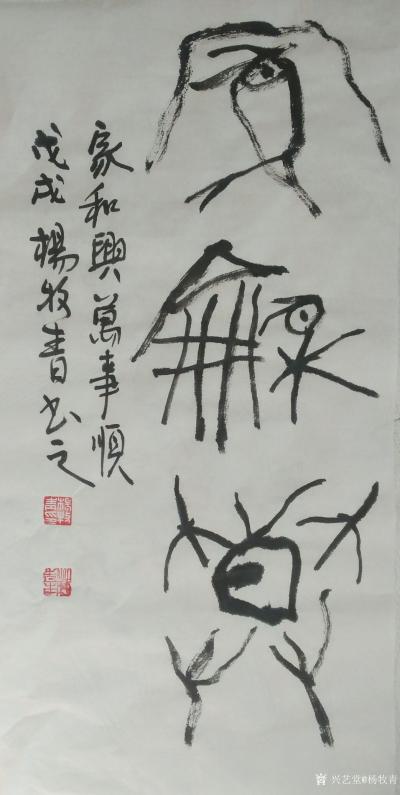 家龢興
家和興萬事順
戊戌楊牧青书之
兴艺堂@杨牧青